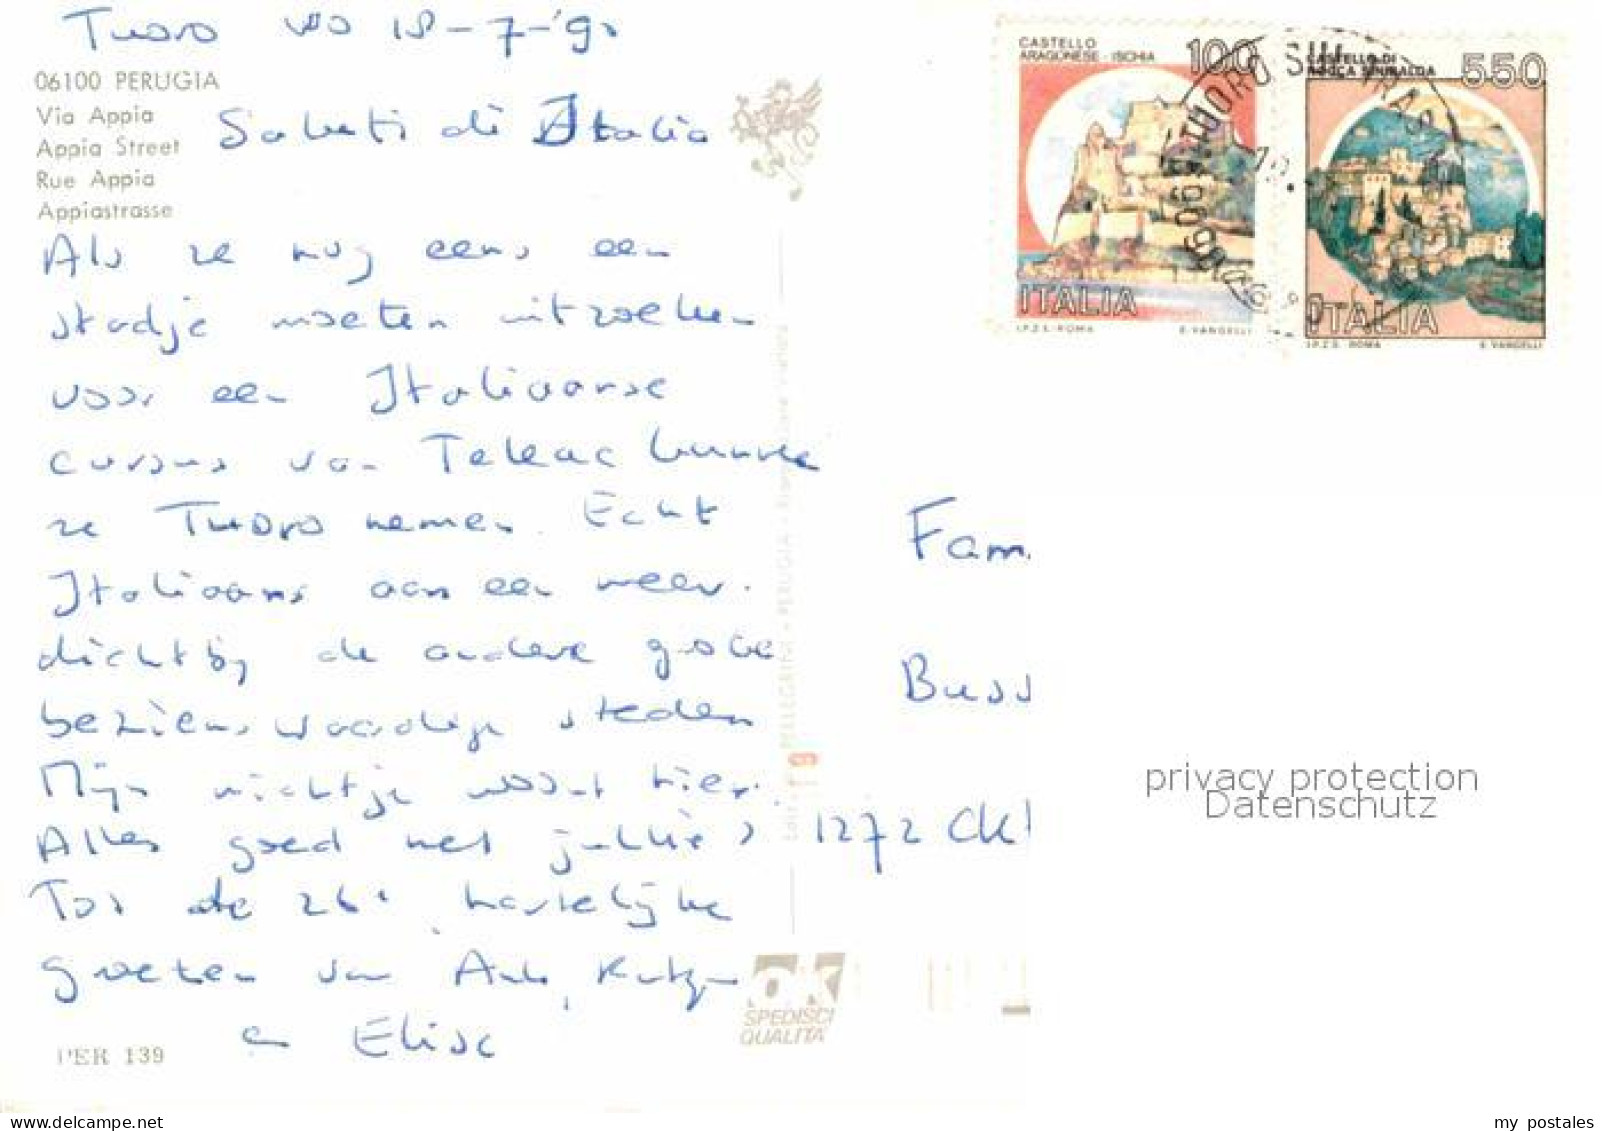 Tuoro wo 18-7-'90
06100 PERUGIA
Via Appia
Appia Street
Rue Appia
Appiastrasse
Saluti di Italia
Als ze nog eens een
stadje moeten uitzoeken
voor een Italiaanse
cursus van Teleac kunnen
ze Tuoro nemen. Echt
Italiaans aan een meer.
dichtbij de andere grote
bezienswaardige steden
Mijn nichtje woont hier.
Alles goed met jullie?
Tot de 26e hartelijke
groeten van
en Elise
PER 139
OK
SPEDISCI
QUALITA'
CASTELLO
ARAGONESE - ISCHIA
100
ITALIA
I.P.Z.S. ROMA E. VANGELLI
CASTELLO DI
ROCCA SINIBALDA
550
ITALIA
I.P.Z.S. ROMA E. VANGELLI
06069 TUORO SUL TRAS
Fam.
Buss
1272 CK
privacy protection
Datenschutz
my postales